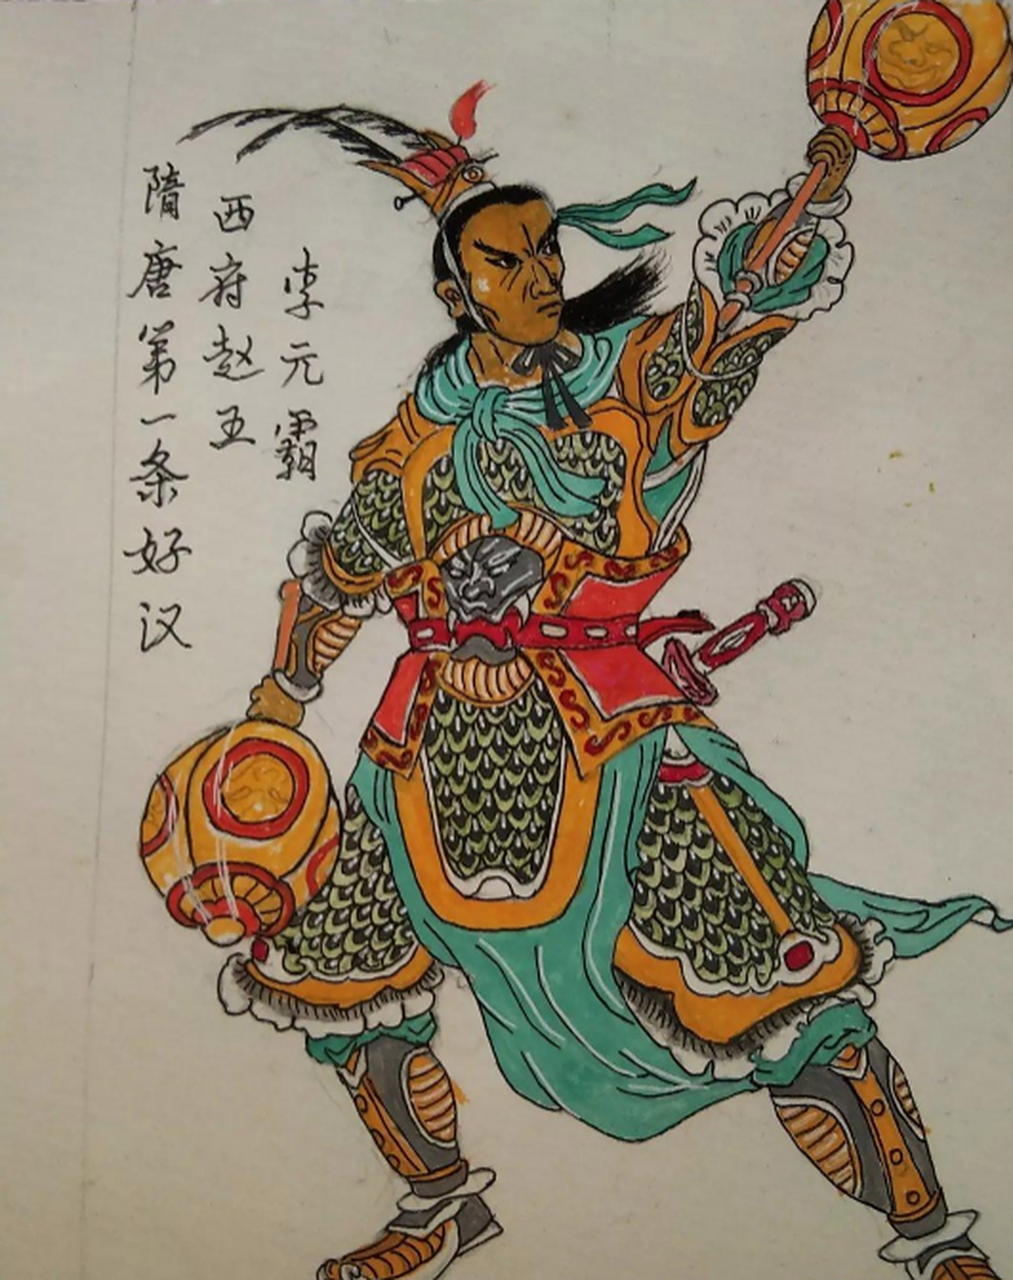 李元霸
西府赵王
隋唐第一条好汉